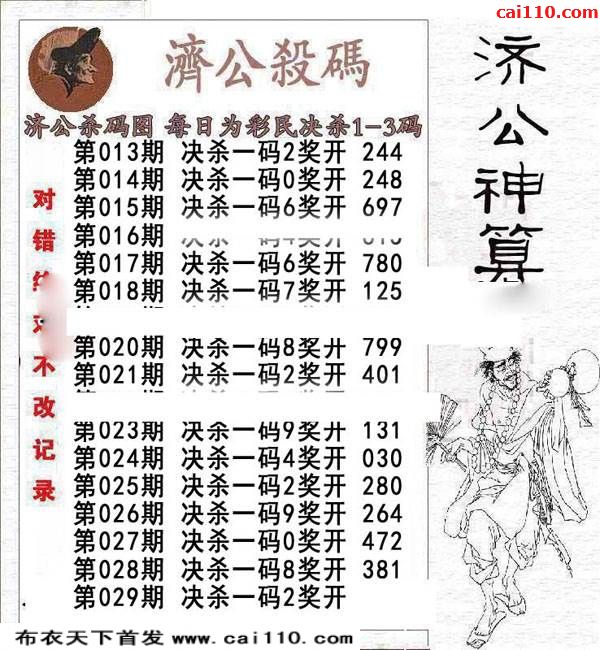 cai110.com
濟公殺碼
济公杀码图 每日为彩民决杀1-3码
第013期 决杀一码2奖开 244
第014期 决杀一码0奖开 248
第015期 决杀一码6奖开 697
第016期
第017期 决杀一码6奖开 780
第018期 决杀一码7奖开 125
第020期 决杀一码8奖开 799
第021期 决杀一码2奖开 401
第023期 决杀一码9奖开 131
第024期 决杀一码4奖开 030
第025期 决杀一码2奖开 280
第026期 决杀一码9奖开 264
第027期 决杀一码0奖开 472
第028期 决杀一码8奖开 381
第029期 决杀一码2奖开
对错 不改记录
济公神算
布衣天下首发 www.cai110.com